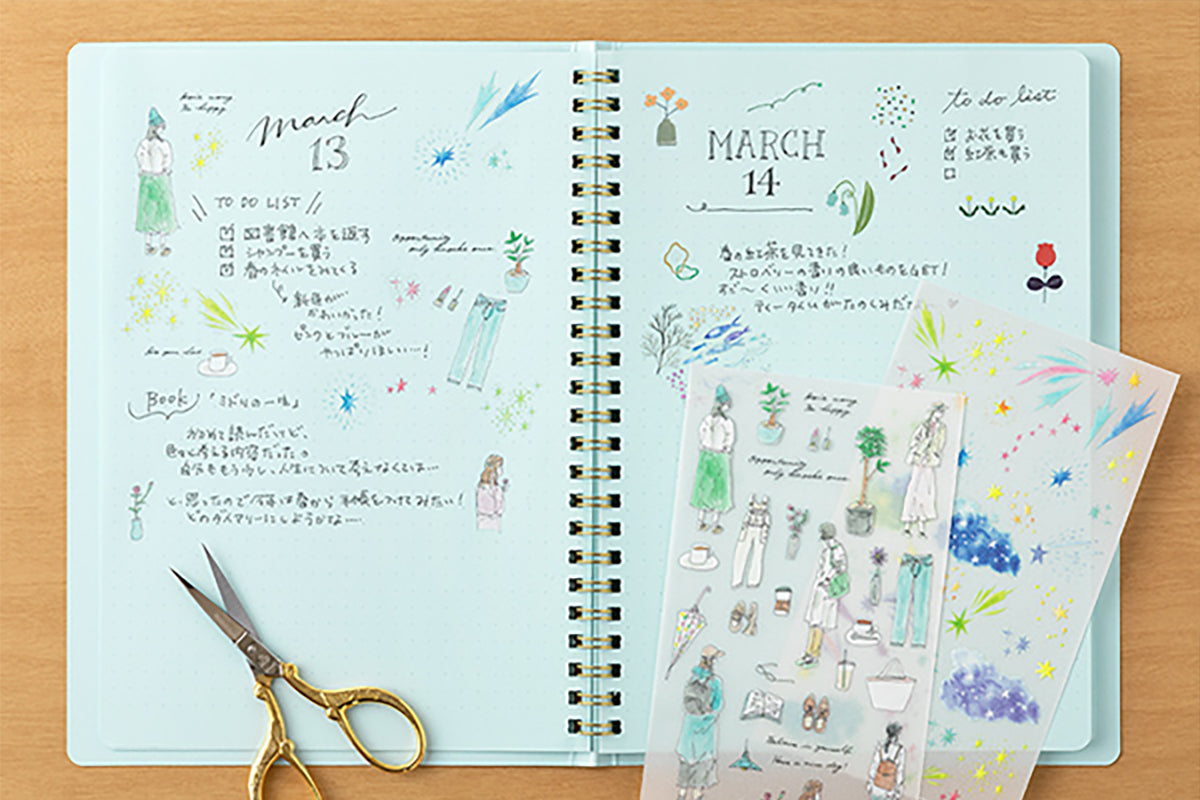 March
13
TO DO LIST
図書館へ本を返す
シャンプーを買う
春のネイルをみてくる
新色が
かわいかった!
ピンクとブルーが
やっぱりほしい…!
Opportunity
only knocks once
Book 「ミドリの一味」
かるめて読んだけど、
色々と考える内容だったの
自分ももう少し、人生について考えなくては…
と思ったので今年は春から手帳をつけてみたい!
どのダイアリーにしようかな…
MARCH
14
to do list
お花を買う
紅茶も買う
春の紅茶を見てきた!
ストロベリーの香りの良いものをGET!
すご〜くいい香り!!
ティータイムがたのしみだ
Opportunity
only knocks once
Believe in yourself
Have a nice day!